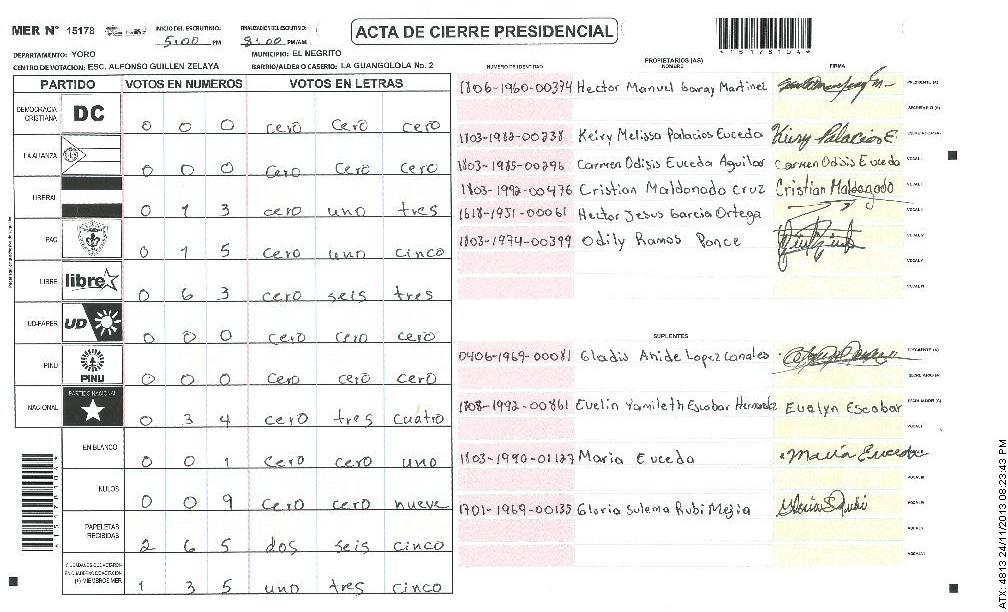 MER N° 15178 INICIO DEL ESCRUTINIO: 5:00 PM FINALIZACION DEL ESCRUTINIO: 8:00 PM/AM ACTA DE CIERRE PRESIDENCIAL
DEPARTAMENTO: YORO MUNICIPIO: EL NEGRITO
CENTRO DE VOTACION: ESC. ALFONSO GUILLEN ZELAYA BARRIO/ALDEA O CASERIO: LA GUANGOLOLA No. 2
PARTIDO VOTOS EN NUMEROS VOTOS EN LETRAS
DEMOCRACIA CRISTIANA DC 0 0 0 cero cero cero
LA ALIANZA 0 0 0 cero cero cero
LIBERAL 0 1 3 cero uno tres
PAC 0 1 5 cero uno cinco
LIBRE libre 0 6 3 cero seis tres
UD-FAPER UD 0 0 0 cero cero cero
PINU PINU 0 0 0 cero cero cero
NACIONAL PARTIDO NACIONAL 0 3 4 cero tres cuatro
EN BLANCO 0 0 1 cero cero uno
NULOS 0 0 9 cero cero nueve
PAPELETAS RECIBIDAS 2 6 5 dos seis cinco
CIUDADANOS QUE VOTARON EN CUADERNO DE VOTACION (+) MIEMBROS MER 1 3 5 uno tres cinco
PROPIETARIOS (AS)
NUMERO DE IDENTIDAD NOMBRE FIRMA
1806-1960-00374 Hector Manuel Garay Martinez PRESIDENTE (A)
SECRETARIO (A)
1803-1982-00238 Keiry Melissa Palacios Euceda Keiry Palacios E
1803-1985-00296 Carmen Odisis Euceda Aguilar Carmen Odisis Euceda VOCAL I
1803-1992-00476 Cristian Maldonado Cruz Cristian Maldonado
1618-1951-00061 Hector Jesus Garcia Ortega
1803-1974-00399 Odily Ramos Ponce
SUPLENTES
0406-1969-00081 Gladis Anide Lopez Canales PRESIDENTE (A)
SECRETARIO (A)
1808-1992-00861 Evelin Yamileth Escobar Hernandez Evelyn Escobar
1803-1990-01127 Maria Euceda Maria Euceda
1701-1969-00135 Gloria Sulema Rubi Mejia Gloria S Rubi
ATX: 4813 24/11/2013 08:23:43 PM